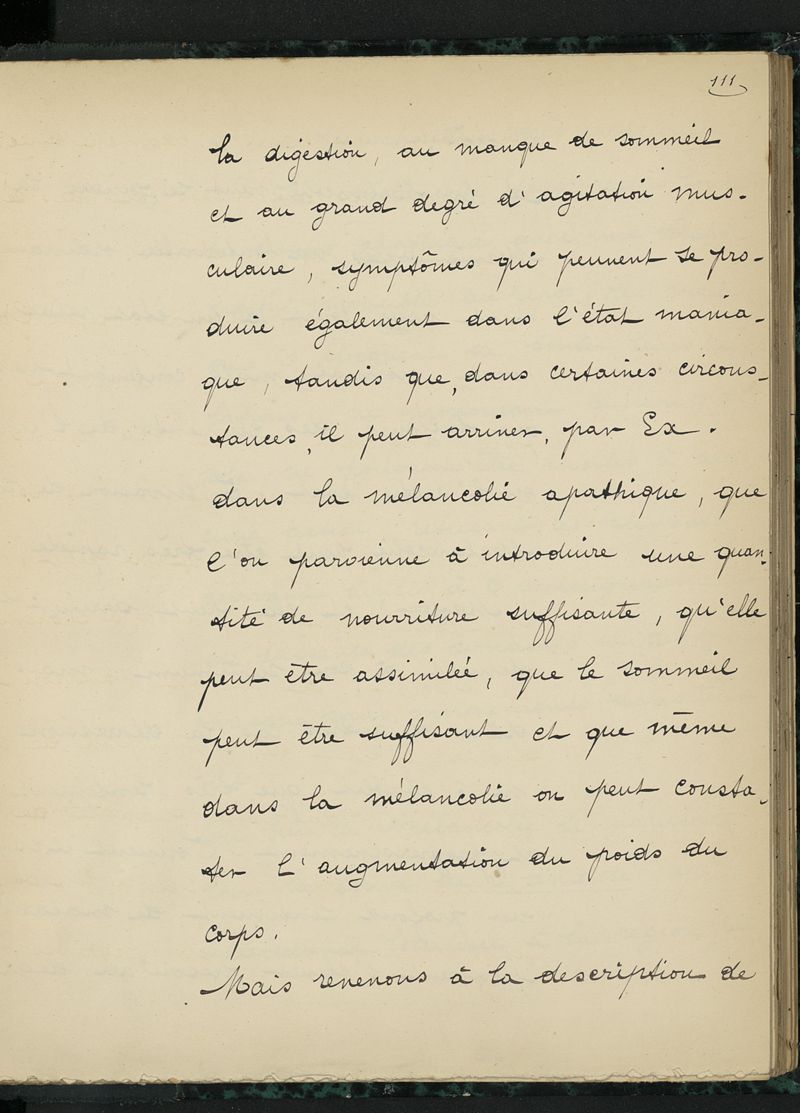 111
la digestion, au manque de sommeil
et au grand degré d'agitation mus-
culaire, symptômes qui peuvent se pro-
duire également dans l'état mania-
que, tandis que, dans certaines circons-
tances, il peut arriver, par Ex.
dans la mélancolie apathique, que
l'on parvienne à introduire une quan-
tité de nourriture suffisante, qu'elle
peut être assimilée, que le sommeil
peut être suffisant et que même
dans la mélancolie on peut consta-
ter l'augmentation du poids du
corps.
Mais revenons à la description de